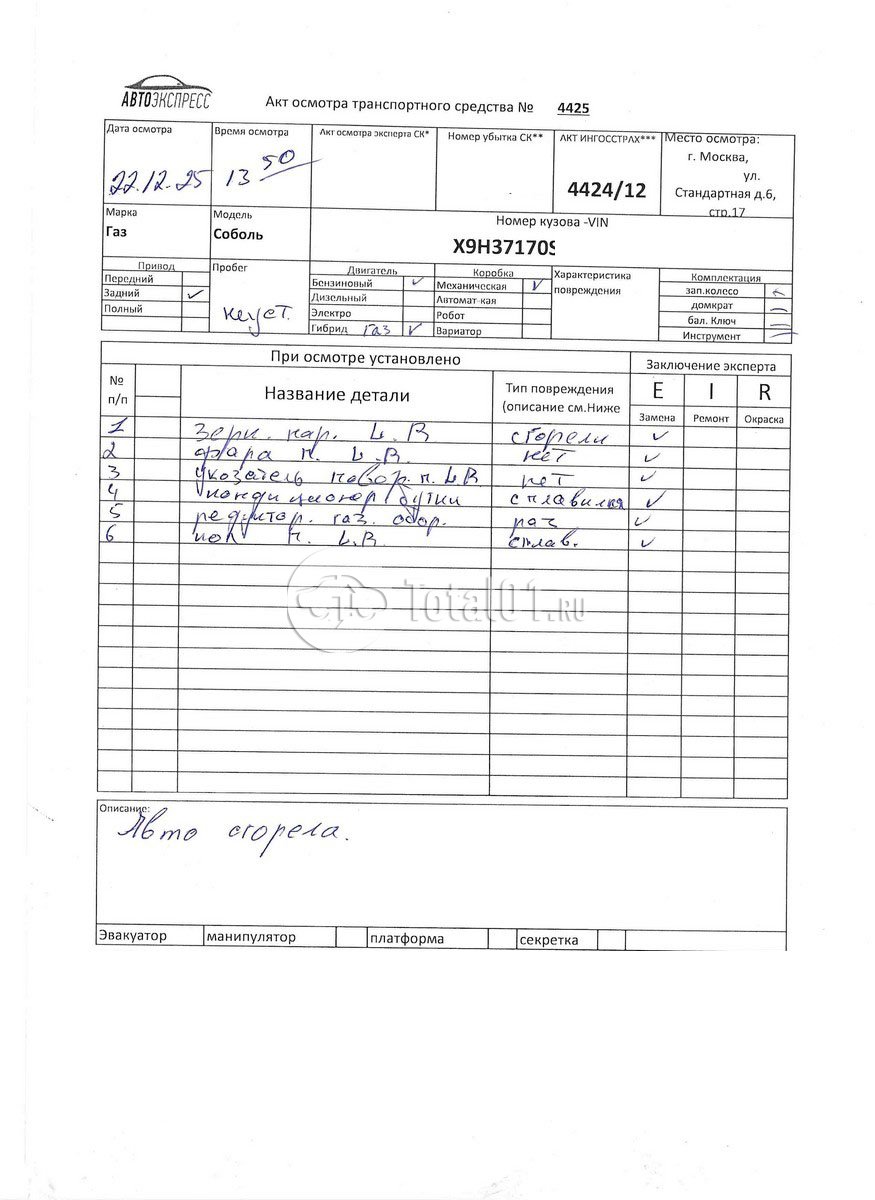 АВТОЭКСПРЕСС
Акт осмотра транспортного средства № 4425
Дата осмотра
22.12.25
Время осмотра
13 50
Акт осмотра эксперта СК*
Номер убытка СК**
АКТ ИНГОССТРАХ***
4424/12
Место осмотра:
г. Москва,
ул.
Стандартная д.6,
стр.17
Марка
Газ
Модель
Соболь
Номер кузова -VIN
X9H37170S
Привод
Передний
Задний ✓
Полный
Пробег
неуст.
Двигатель
Бензиновый ✓
Дизельный
Электро
Гибрид газ ✓
Коробка
Механическая ✓
Автомат-кая
Робот
Вариатор
Характеристика
повреждения
Комплектация
зап.колесо
домкрат
бал. Ключ
Инструмент
При осмотре установлено
Заключение эксперта
№
п/п
Название детали
Тип повреждения
(описание см.Ниже
E I R
Замена Ремонт Окраска
1 зерк. нар. L.R сгорели ✓
2 фара п. L.R. нет ✓
3 указатель повор. п. L.R нет ✓
4 кондиционер ✓
5 редуктор. газ. обор. ✓
6 п. L.R. сплав. ✓
Total01.RU
Описание:
Авто сгорела.
Эвакуатор манипулятор платформа секретка